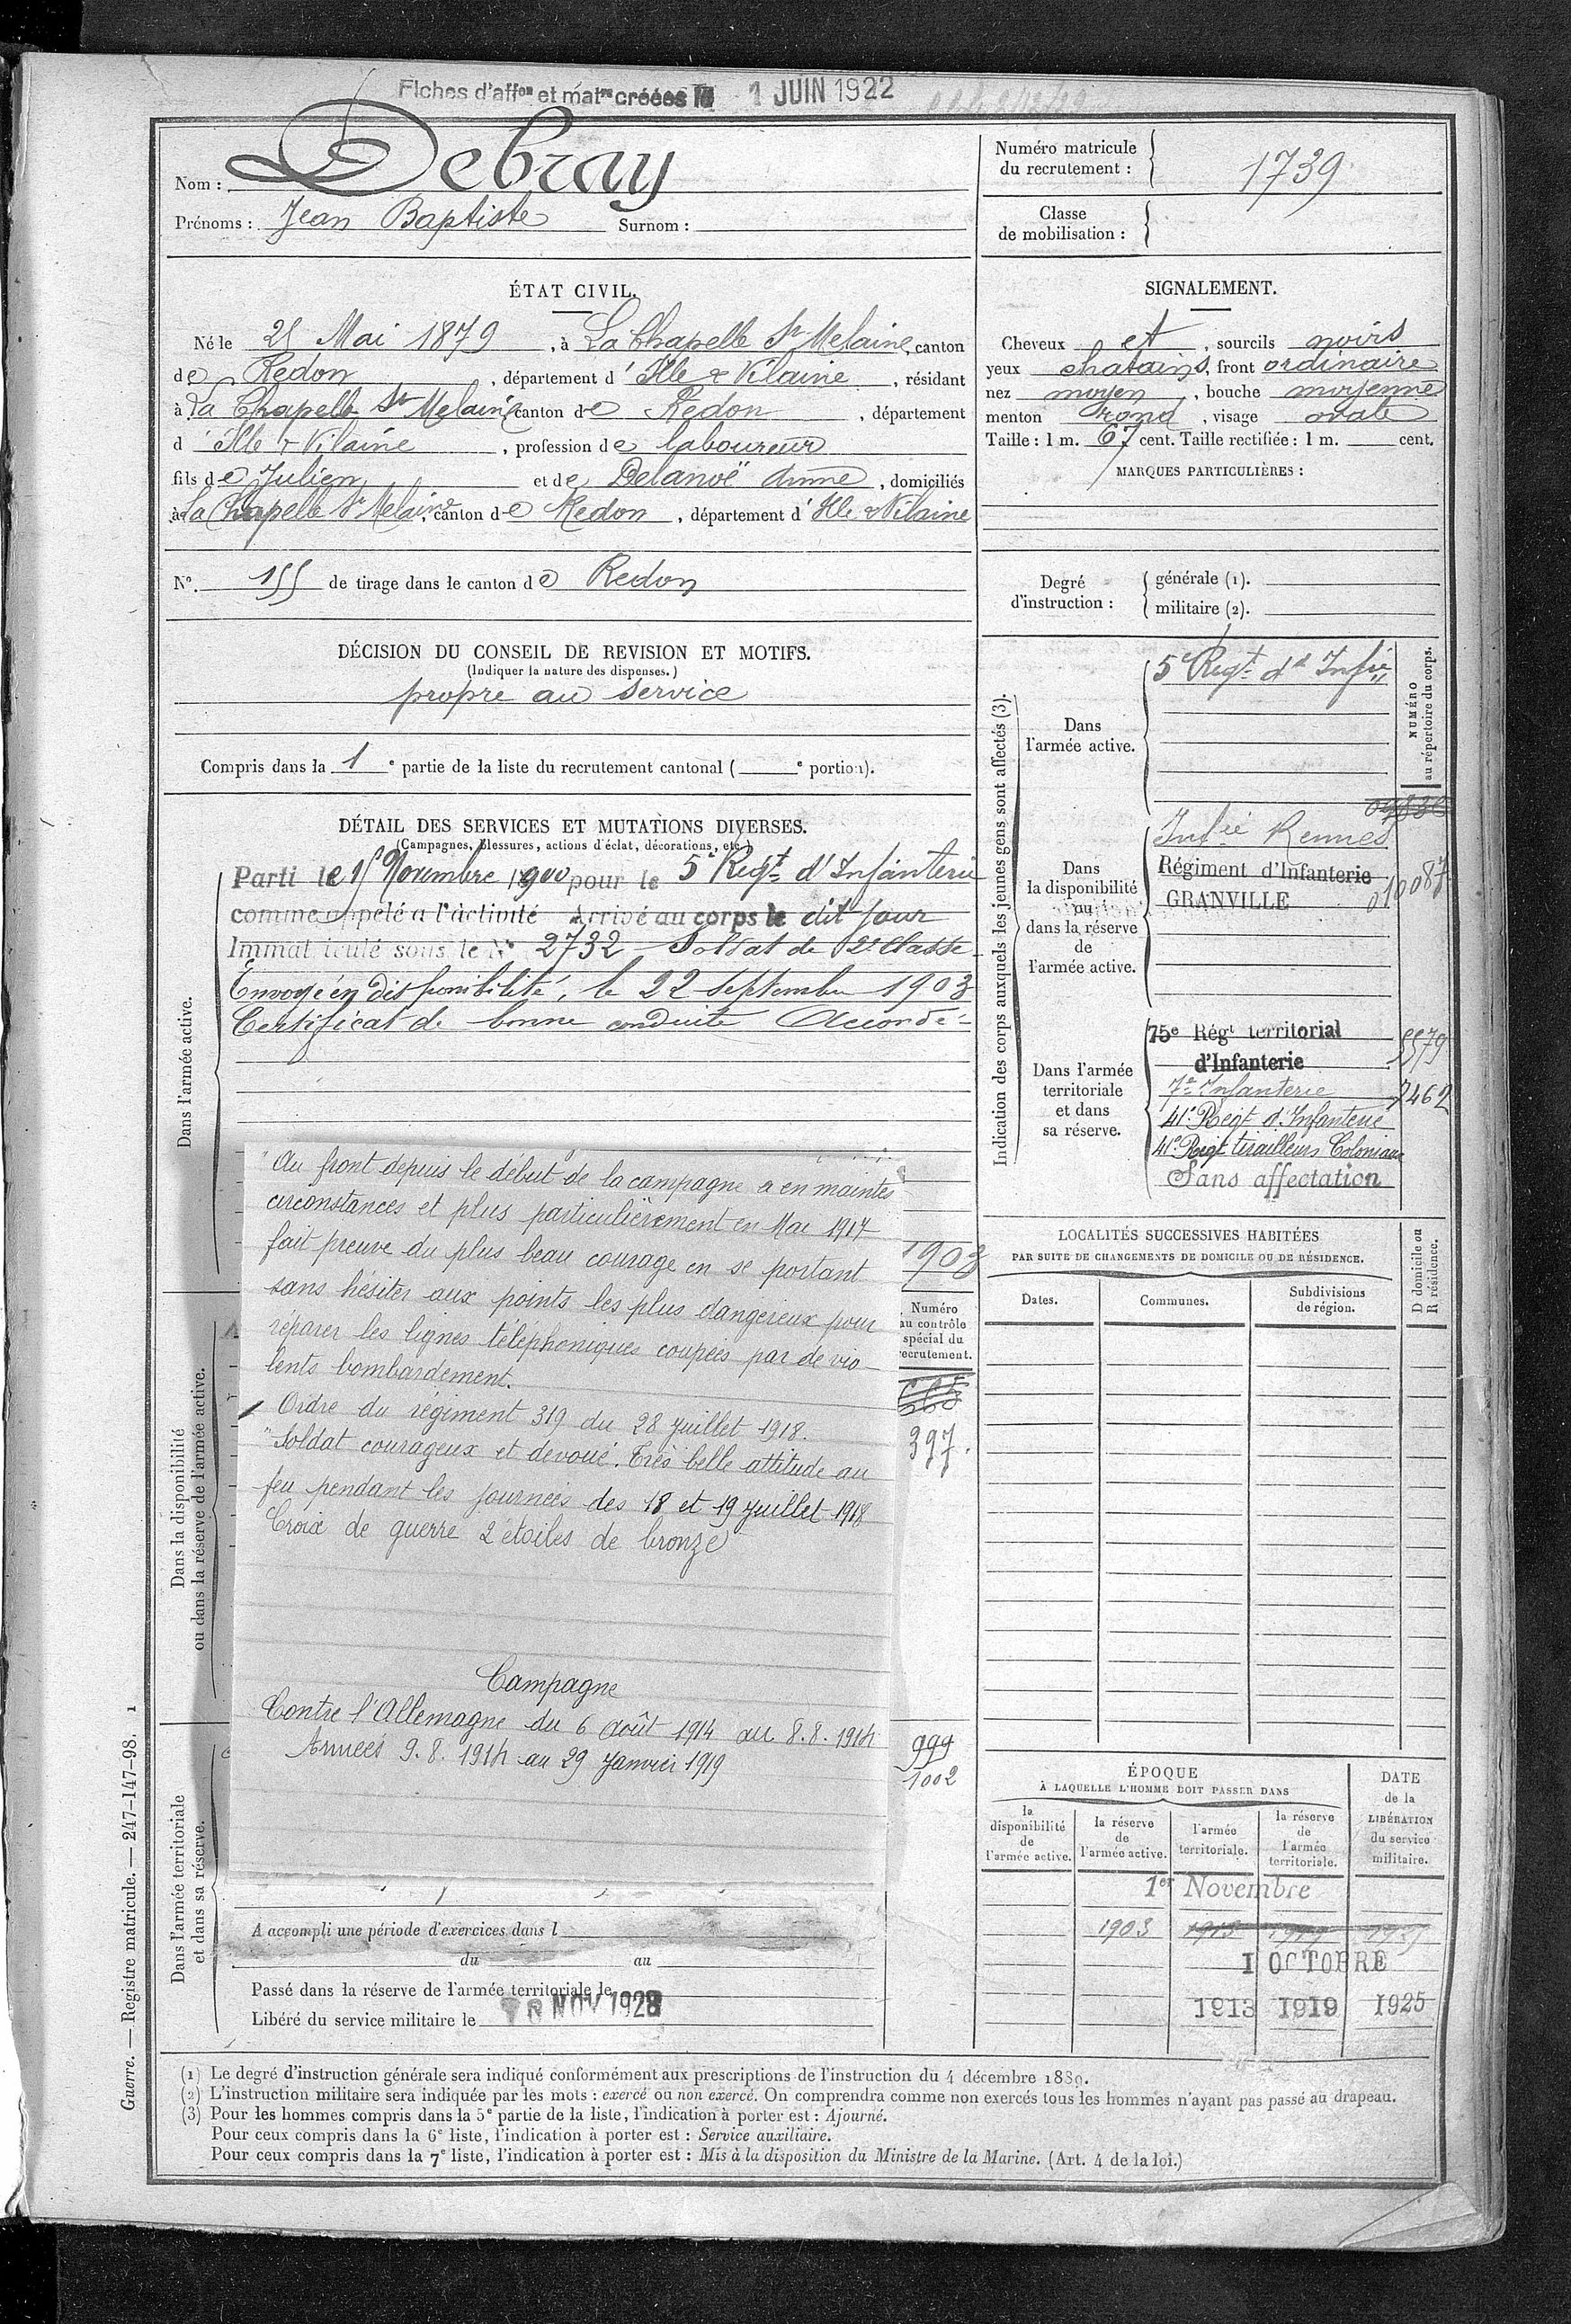 Fiches d'affon et matres créées le 1 JUIN 1922
Nom : Debray
Prénoms : Jean Baptiste Surnom :
Numéro matricule
du recrutement : 1739
Classe
de mobilisation :
ÉTAT CIVIL.
Né le 25 Mai 1879, à La Chapelle St Melaine, canton
de Redon, département d'Ille & Vilaine, résidant
à La Chapelle St Melaine canton de Redon, département
d'Ille & Vilaine, profession de laboureur
fils de Julien et de Delanoë Anne, domiciliés
à La Chapelle St Melaine, canton de Redon, département d'Ille & Vilaine
N° 155 de tirage dans le canton de Redon
SIGNALEMENT.
Cheveux et, sourcils noirs
yeux chatains, front ordinaire
nez moyen, bouche moyenne
menton rond, visage ovale
Taille : 1 m. 67 cent. Taille rectifiée : 1 m. cent.
MARQUES PARTICULIÈRES :
Degré
d'instruction :
générale (1).
militaire (2).
DÉCISION DU CONSEIL DE REVISION ET MOTIFS.
(Indiquer la nature des dispenses.)
propre au service
Compris dans la 1e partie de la liste du recrutement cantonal ( e portion).
DÉTAIL DES SERVICES ET MUTATIONS DIVERSES.
(Campagnes, blessures, actions d'éclat, décorations, etc.)
Dans l'armée active.
Parti le 15 Novembre 1900 pour le 5e Regt d'Infanterie
comme appelé a l'activité Arrivé au corps le dit jour
Immatriculé sous le N° 2732 Soldat de 2e classe
Envoyé en disponibilité, le 22 septembre 1903
Certificat de bonne conduite Accordé
"Au front depuis le début de la campagne a en maintes
circonstances et plus particulièrement en Mai 1917
fait preuve du plus beau courage en se portant
sans hésiter aux points les plus dangereux pour
réparer les lignes téléphoniques coupées par de vio-
lents bombardement.
Ordre du régiment 319 du 28 Juillet 1918.
"Soldat courageux et devoué. Très belle attitude au
feu pendant les journées des 18 et 19 Juillet 1918
Croix de guerre 2 étoiles de bronze
Campagne
Contre l'Allemagne du 6 août 1914 au 8.8.1914
Armées 9.8.1914 au 29 Janvier 1919
1903
Numéro
au contrôle
spécial du
recrutement.
397.
999
1002
Dans la disponibilité
ou dans la réserve de l'armée active.
Dans l'armée territoriale
et dans sa réserve.
A accompli une période d'exercices dans l
du au
Passé dans la réserve de l'armée territoriale le
Libéré du service militaire le NOV 1928
Indication des corps auxquels les jeunes gens sont affectés (3).
NUMÉRO
au répertoire du corps.
Dans
l'armée active.
5e Regt d' Infie
Dans
la disponibilité
ou
dans la réserve
de
l'armée active.
Infie Rennes
Régiment d'Infanterie
GRANVILLE 010087
Dans l'armée
territoriale
et dans
sa réserve.
75e Régt territorial
d'Infanterie 5579
7e Infanterie 7462
41e Regt d'Infanterie
41e Regt tirailleurs Coloniaux
Sans affectation
LOCALITÉS SUCCESSIVES HABITÉES
PAR SUITE DE CHANGEMENTS DE DOMICILE OU DE RÉSIDENCE.
D domicile ou
R résidence.
Dates. Communes. Subdivisions
de région.
ÉPOQUE
À LAQUELLE L'HOMME DOIT PASSER DANS
la
disponibilité
de
l'armée active.
la réserve
de
l'armée active.
l'armée
territoriale.
la réserve
de
l'armée
territoriale.
DATE
de la
LIBÉRATION
du service
militaire.
1er Novembre
1903 1913
1 OCTOBRE
1913 1919 1925
Guerre. — Registre matricule. — 247-147-98. 1
(1) Le degré d'instruction générale sera indiqué conformément aux prescriptions de l'instruction du 4 décembre 1889.
(2) L'instruction militaire sera indiquée par les mots : exercé ou non exercé. On comprendra comme non exercés tous les hommes n'ayant pas passé au drapeau.
(3) Pour les hommes compris dans la 5e partie de la liste, l'indication à porter est : Ajourné.
Pour ceux compris dans la 6e liste, l'indication à porter est : Service auxiliaire.
Pour ceux compris dans la 7e liste, l'indication à porter est : Mis à la disposition du Ministre de la Marine. (Art. 4 de la loi.)